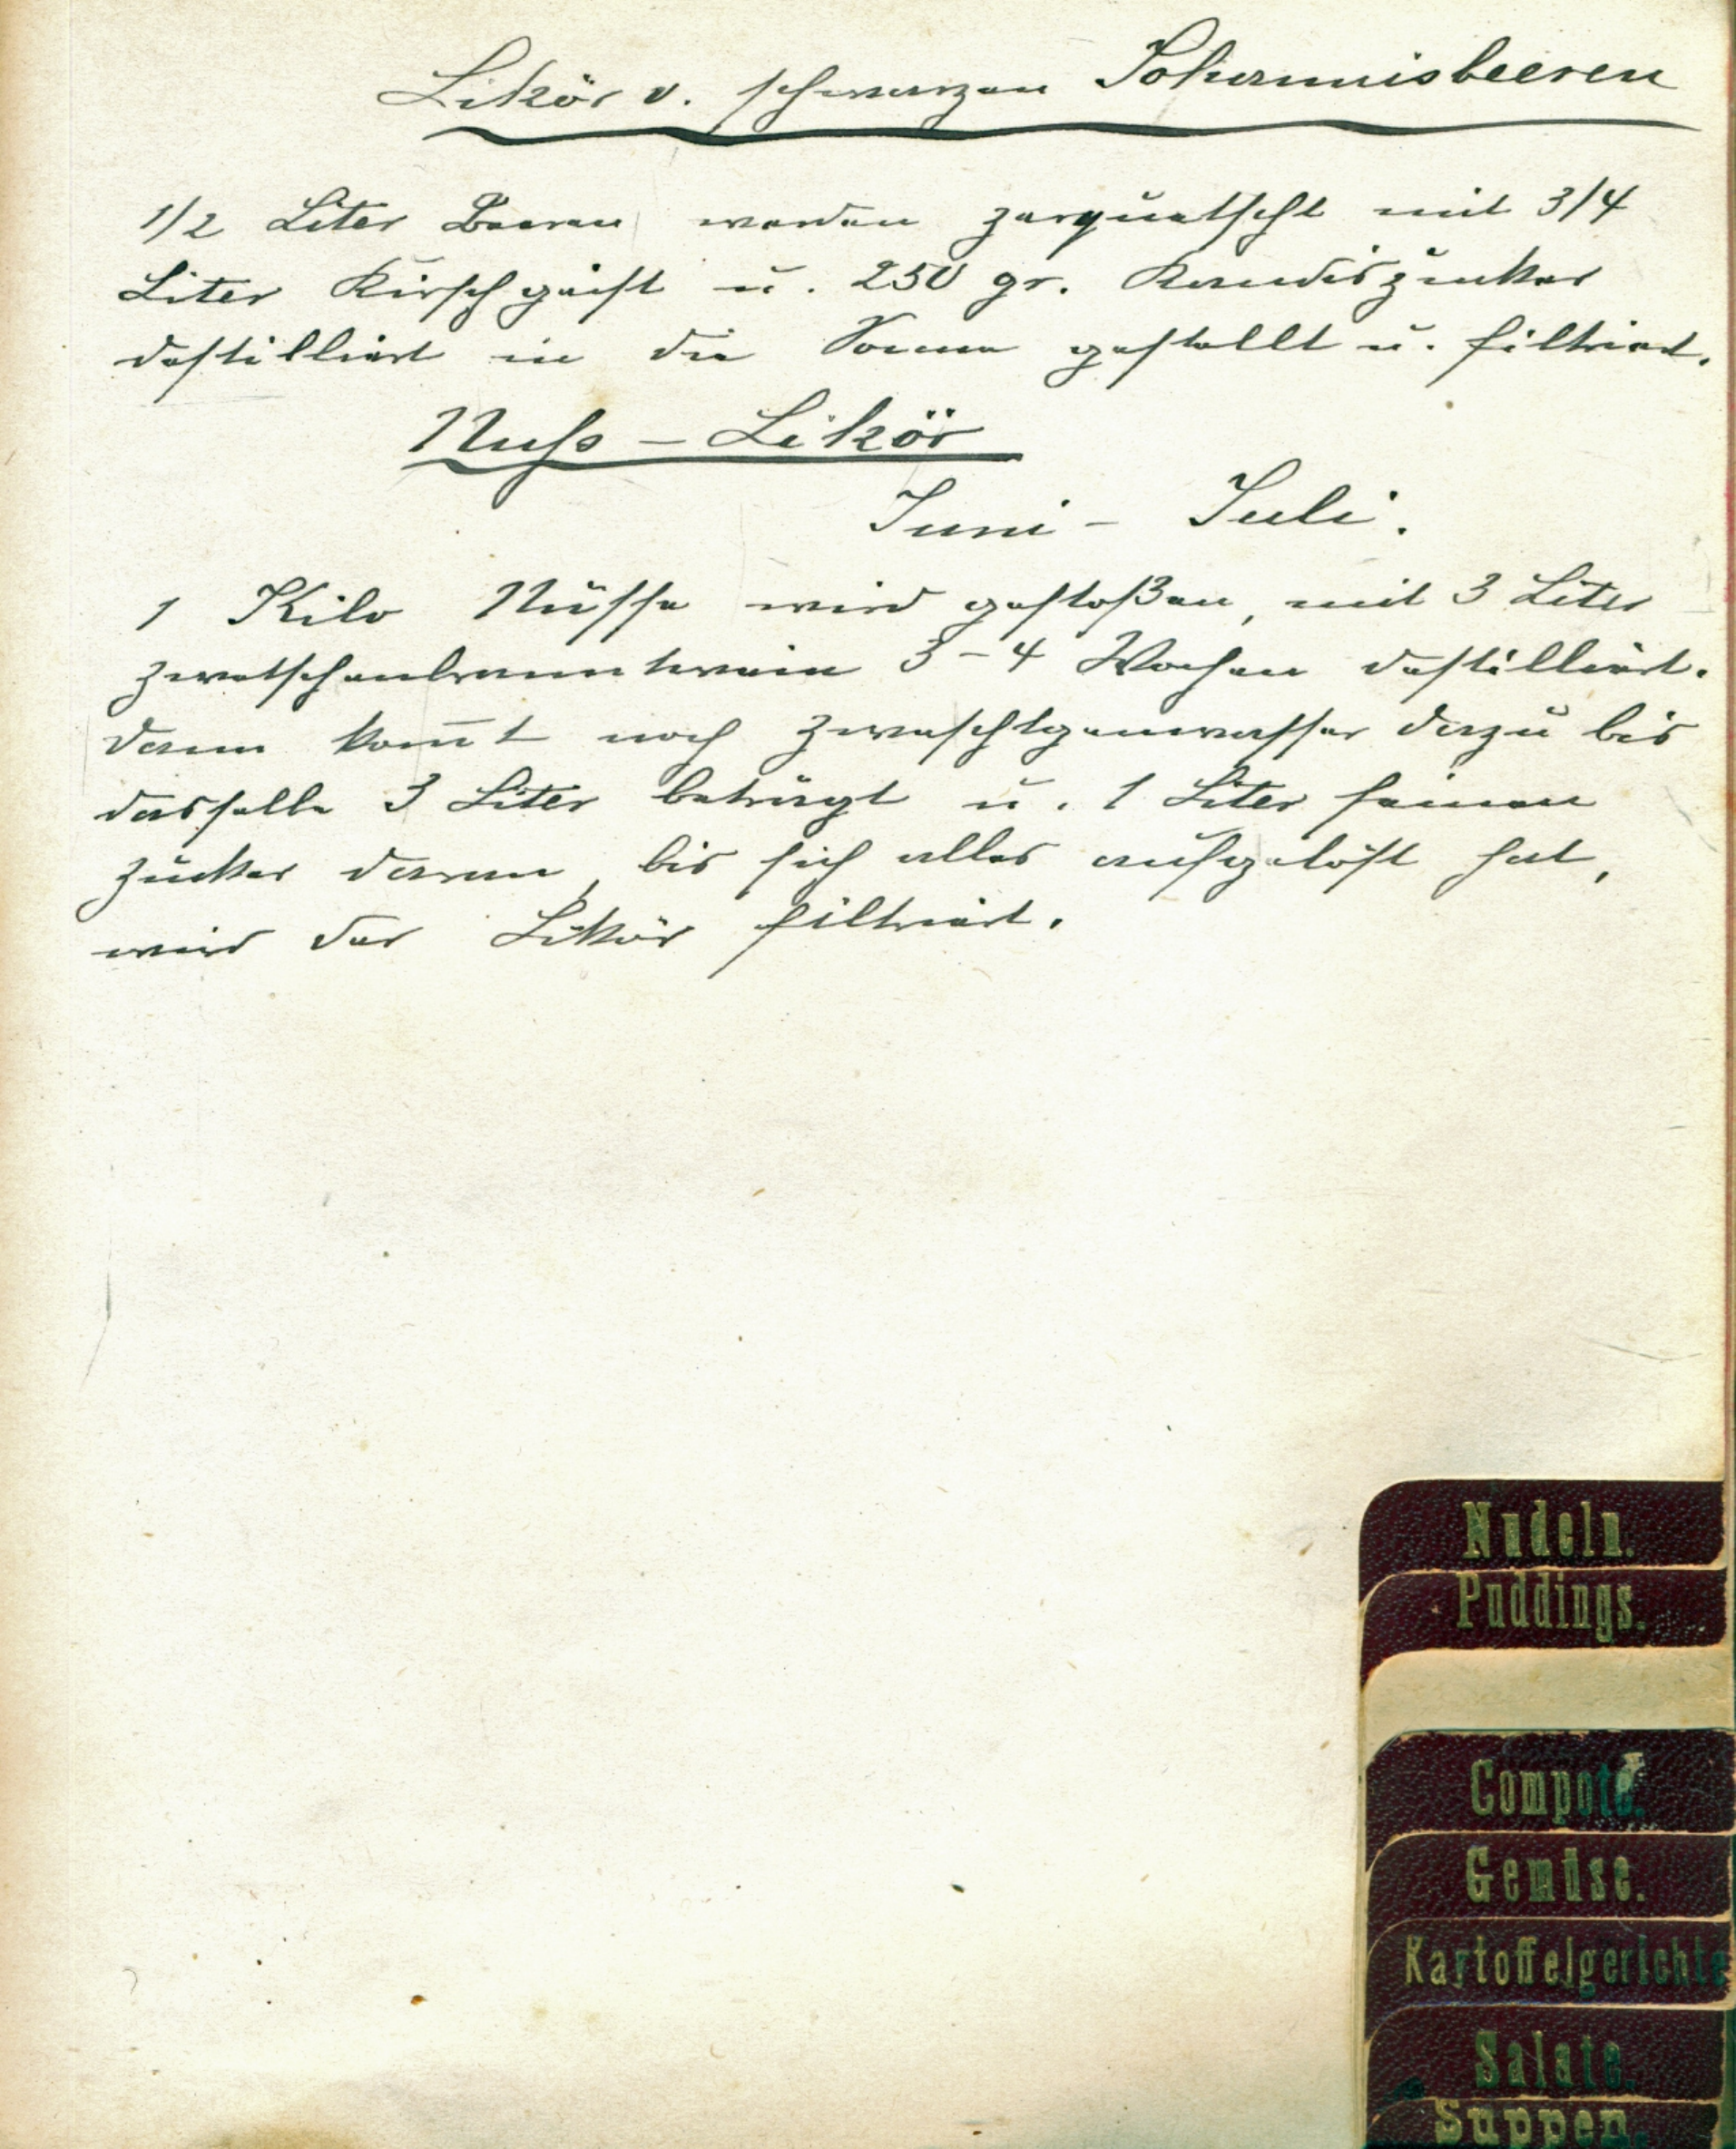 Likör v. schwarzen Johannisbeeren
1/2 Liter Beeren werden zerquetscht mit 3/4
Liter Kirschgeist u. 250 gr. Kandiszucker
destilliert in die Sonne gestellt u. filtriert.
Nuss - Likör
Juni - Juli.
1 Kilo Nüsse wird gestoßen, mit 3 Liter
Zwetschenbranntwein 3-4 Wochen destilliert.
dann kom̄t noch dazu bis
dasselbe 3 Liter beträgt u. 1 Liter feinen
Zucker daran, bis sich alles aufgelöst hat,
wird der Likör filtriert.
Nudeln.
Puddings.
Compote.
Gemüse.
Kartoffelgerichte
Salate.
Suppen.